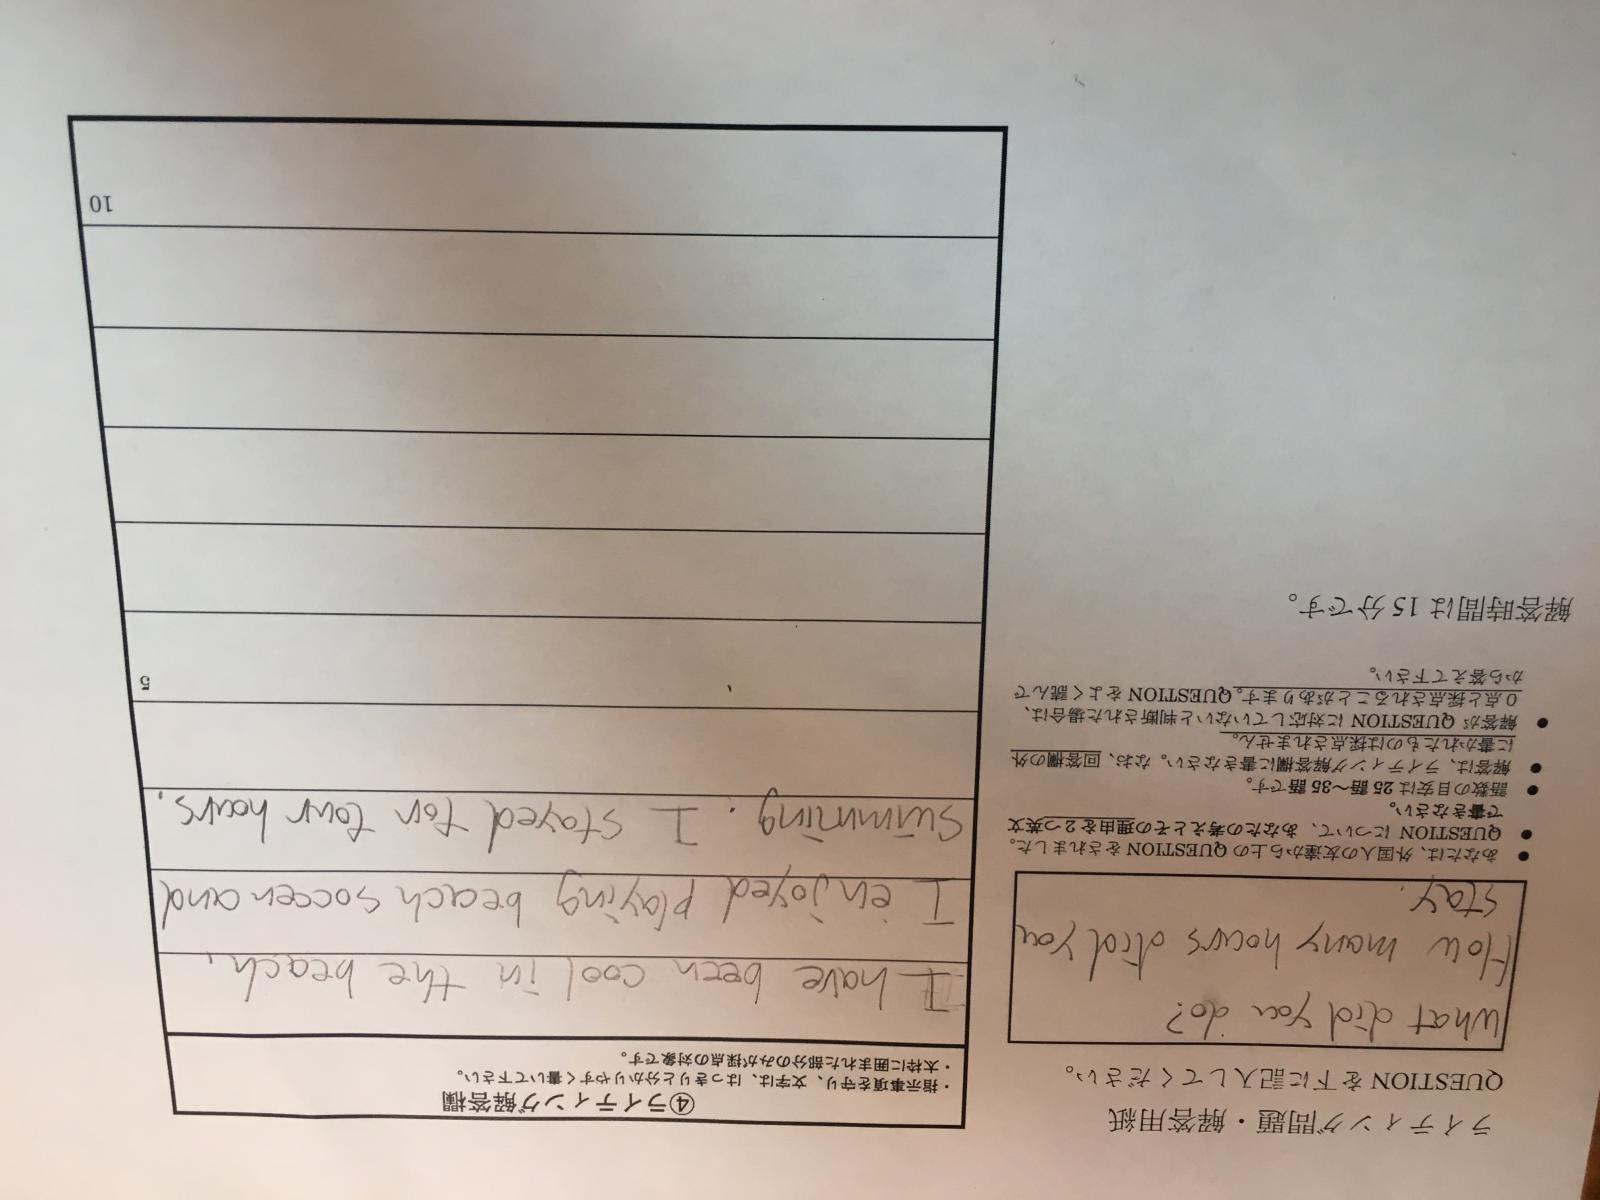 ライティング問題・解答用紙
QUESTION を下に記入してください。
What did you do?
How many hours did you
stay.
● あなたは、外国人の友達から上の QUESTION をされました。
● QUESTION について、あなたの考えとその理由を2つ英文
で書きなさい。
● 語数の目安は 25 語～35 語です。
● 解答は、ライティング解答欄に書きなさい。なお、回答欄の外
に書かれたものは採点されません。
● 解答が QUESTION に対応していないと判断された場合は、
0点と採点されることがあります。QUESTION をよく読んで
から答えて下さい。
解答時間は 15 分です。
④ライティング解答欄
・指示事項を守り、文字は、はっきりと分かりやすく書いて下さい。
・太枠に囲まれた部分のみが採点の対象です。
I have been cool in the beach.
I enjoyed playing beach soccer and
swimming. I stayed for four hours.
5
10